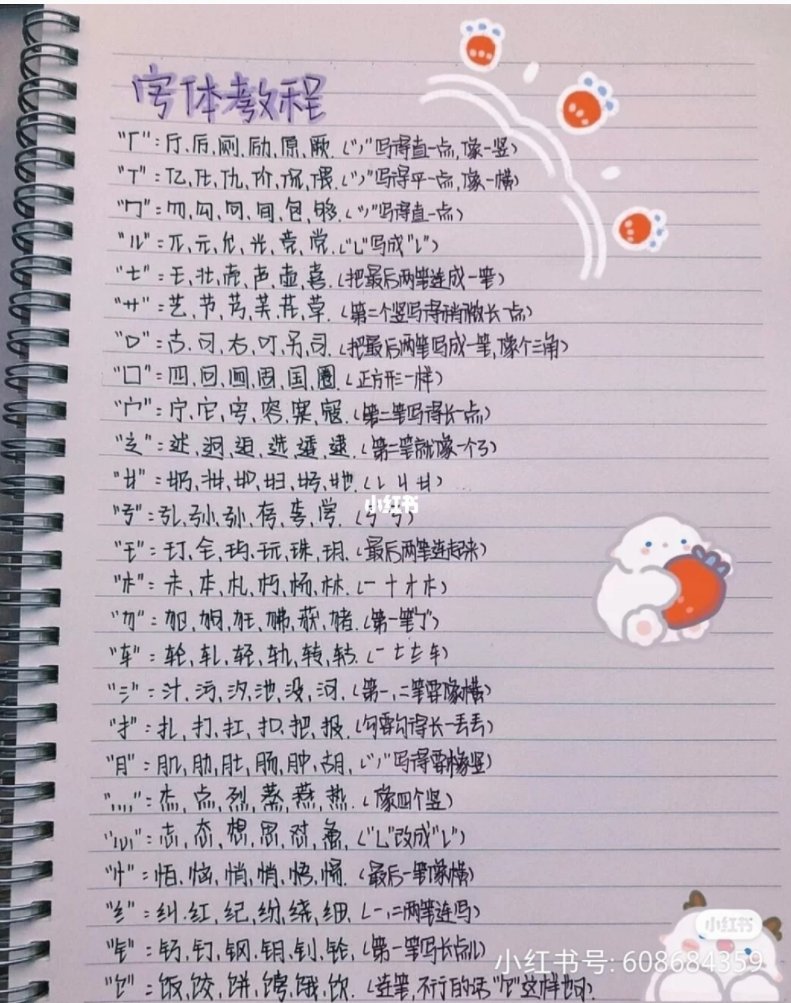 字体教程
"厂":厅,后,刷,励,原,厥.("丿"写得直一点,像一竖)
"亻":亿,仕,仇,价,保,偎.("丿"写得平一点,像一横)
"勹":勿,勾,句,旬,包,够.("丿"写得直一点)
"儿":兀,元,允,光,竞,党.("乚"写成"レ")
"士":王,壮,壳,声,壶,喜.(把最后两笔连成一笔)
"艹":艺,节,芎,芙,茾,草.(第二个竖写得稍微长一点)
"口":古,可,右,叮,另,司.(把最后两笔写成一笔,像个三角)
"囗":四,回,画,固,国,圈.(正方形一样)
"宀":宁,它,穹,容,寞,寇.(第二笔写得长一点)
"辶":述,迥,迫,选,透,逮.(第二笔就像一个3)
小红书
"孑":孔,孙,孙,存,孪,学.
"王":玎,全,玙,玩,珠,玥.(最后两笔连起来)
"木":未,本,札,朽,杨,林.(一十才木)
"车":轮,轧,轻,轨,转,轱.
"氵":汁,污,汐,池,没,河.(第一,二笔要像横)
"扌":扎,打,扛,扣,把,报.(勾要勾得长一丢丢)
"月":肌,肋,肚,肠,肿,胡,("丿"写得要像竖)
"灬":杰,点,烈,蒸,燕,热.(像四个竖)
"心":志,态,想,思,怼,惫,("乚"改成"レ")
"忄":怕,恼,悄,悄,悟,惕.(最后一笔像横)
"纟":纠,红,纪,纷,绕,细.(一,二两笔连写)
"钅":钙,钉,钢,钥,钊,轮,(第一笔写长点儿)
"饣":饭,饺,饼,饽,饿,饮.(连笔,不行的话"饣"这样也可)
小红书
小红书号: 608684359